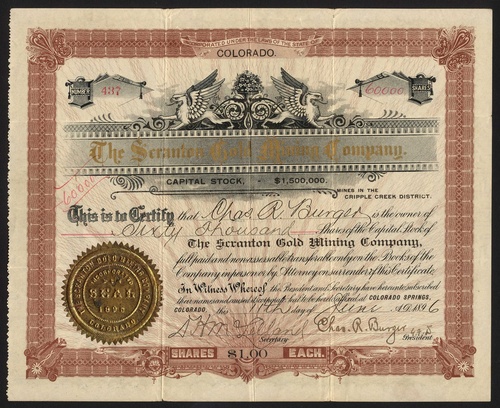 INCORPORATED UNDER THE LAWS OF THE STATE OF
COLORADO.
NUMBER 487
SHARES 60000
The Scranton Gold Mining Company.
CAPITAL STOCK, - $1,500,000.
MINES IN THE
CRIPPLE CREEK DISTRICT.
60000
This is to Certify that Chas R. Burger is the owner of
Sixty Thousand Shares of the Capital Stock of
The Scranton Gold Mining Company,
full paid and non assessable transferable only on the Books of the
Company in person or by Attorney on surrender of this Certificate.
In Witness Whereof the President and Secretary have hereunto subscribed
their names and caused the corporate Seal to be hereto affixed at COLORADO SPRINGS,
COLORADO, this 11th day of June A.D. 1896
Secretary
Chas. R. Burger
President
THE SCRANTON GOLD MINING COMPANY
INCORPORATED
SEAL
COLORADO
SHARES $1.00 EACH.